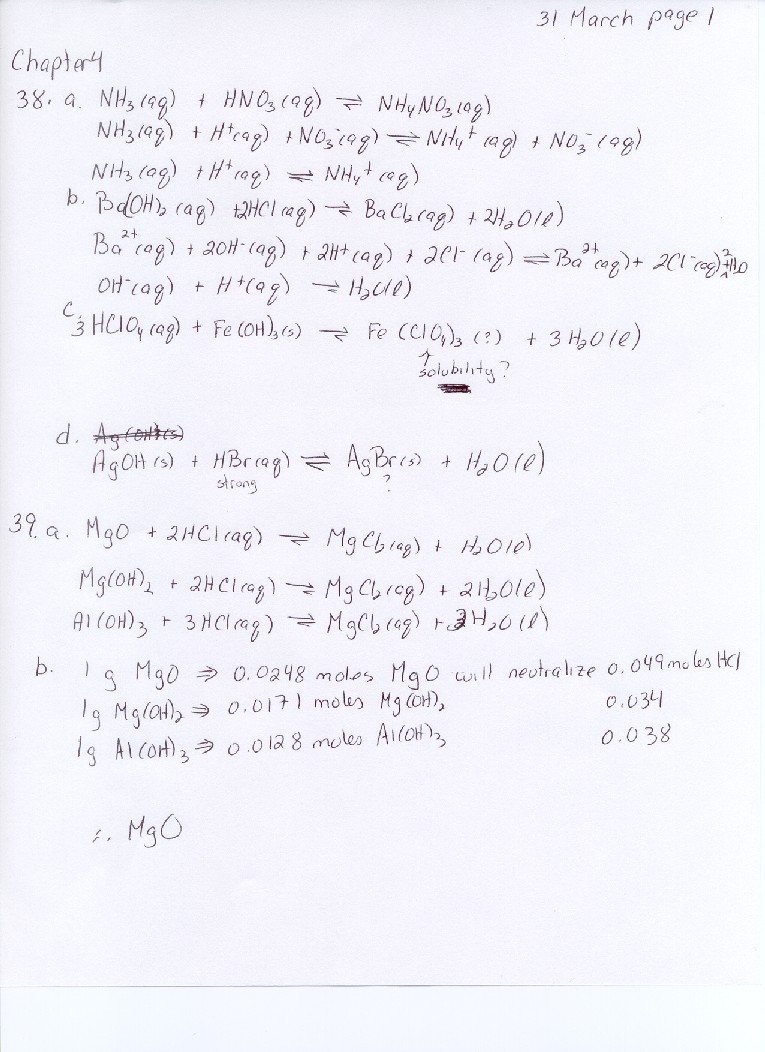 31 March page 1
Chapter 4
38. a. NH3(aq) + HNO3(aq) ⇌ NH4NO3(aq)
NH3(aq) + H+(aq) + NO3-(aq) ⇌ NH4+(aq) + NO3-(aq)
NH3(aq) + H+(aq) ⇌ NH4+(aq)
b. Ba(OH)2(aq) + 2HCl(aq) ⇌ BaCl2(aq) + 2H2O(l)
Ba2+(aq) + 2OH-(aq) + 2H+(aq) + 2Cl-(aq) ⇌ Ba2+(aq) + 2Cl-(aq) + 2H2O
OH-(aq) + H+(aq) → H2O(l)
c. 3HClO4(aq) + Fe(OH)3(s) ⇌ Fe(ClO4)3(?) + 3H2O(l)
↑
solubility?
d. Ag(OH)(s)
AgOH(s) + HBr(aq) ⇌ AgBr(s) + H2O(l)
strong ?
39. a. MgO + 2HCl(aq) ⇌ MgCl2(aq) + H2O(l)
Mg(OH)2 + 2HCl(aq) ⇌ MgCl2(aq) + 2H2O(l)
Al(OH)3 + 3HCl(aq) ⇌ MgCl2(aq) + 3H2O(l)
b. 1 g MgO ⇒ 0.0248 moles MgO will neutralize 0.049 moles HCl
1g Mg(OH)2 ⇒ 0.0171 moles Mg(OH)2 0.034
1g Al(OH)3 ⇒ 0.0128 moles Al(OH)3 0.038
∴ MgO